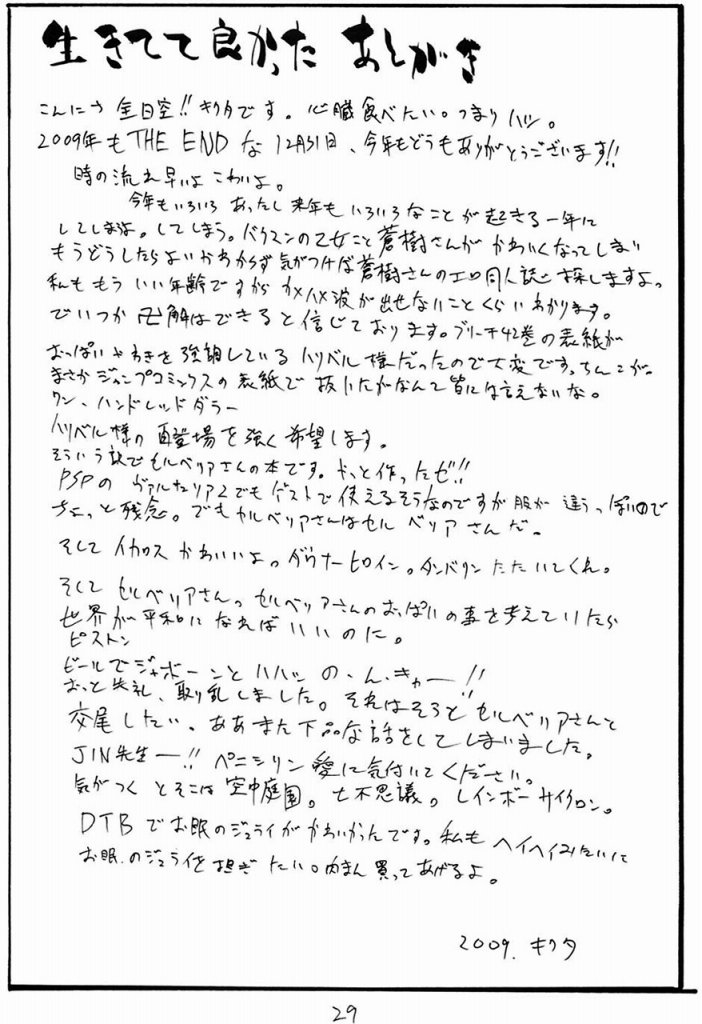 生きてて良かった あとがき
こんにつ 全日空!! キクタです。心臓食べたい。つまりハツ。
2009年もTHE ENDな12月31日、今年もどうもありがとうございます!!
時の流れ早いよ こわいよ。
今年もいろいろあったし来年もいろいろなことが起きる一年に
してしまうよ。してしまう。バクマンの乙女こと蒼樹さんがかわいくなってしまい
もうどうしたらよいかわからず気がつけば蒼樹さんのエロ同人誌を探しますよっ
私ももういい年齢ですからカメハメ波が出せないことくらいわかります。
でいつか卍解はできると信じております。ブリーチ42巻の表紙が
おっぱいやわきを強調しているハリベル様だったので大変です。ちんこが。
まさかジャンプコミックスの表紙で抜いたがなんて皆には言えないな。
ワン、ハンドレッドダラー
ハリベル様の再登場を強く希望します。
そういう訳でセルベリアさんの本です。やっと作ったゼ!!
PSPのヴァルキュリア2でもゲストで使えるそうなのですが服が違うっぽいので
ちょっと残念。でもセルベリアさんはセルベリアさんだ。
そしてイカロスかわいいよっ。ダウナーヒロイン。タンバリンたたいてくれ。
そしてセルベリアさんっ セルベリアさんのおっぱいの事を考えていたら
世界が平和になればいいのに。
ピストン
ビールでジャボーンとハハッ の、ん、きゃー!!
おっと失礼、取り乱しました。それはそうとセルベリアさんと
交尾したい。ああまた下品な話をしてしまいました。
JIN先生ー!! ペニシリン愛に気付いてください。
気がつくとそこは空中庭園。七不思議。レインボーサイクロン。
DTBでお眠のジュライがかわいかったです。私もヘイヘイみたいに
お眠のジュライを担ぎたい。肉まん買ってあげるよ。
2009. キクタ
29